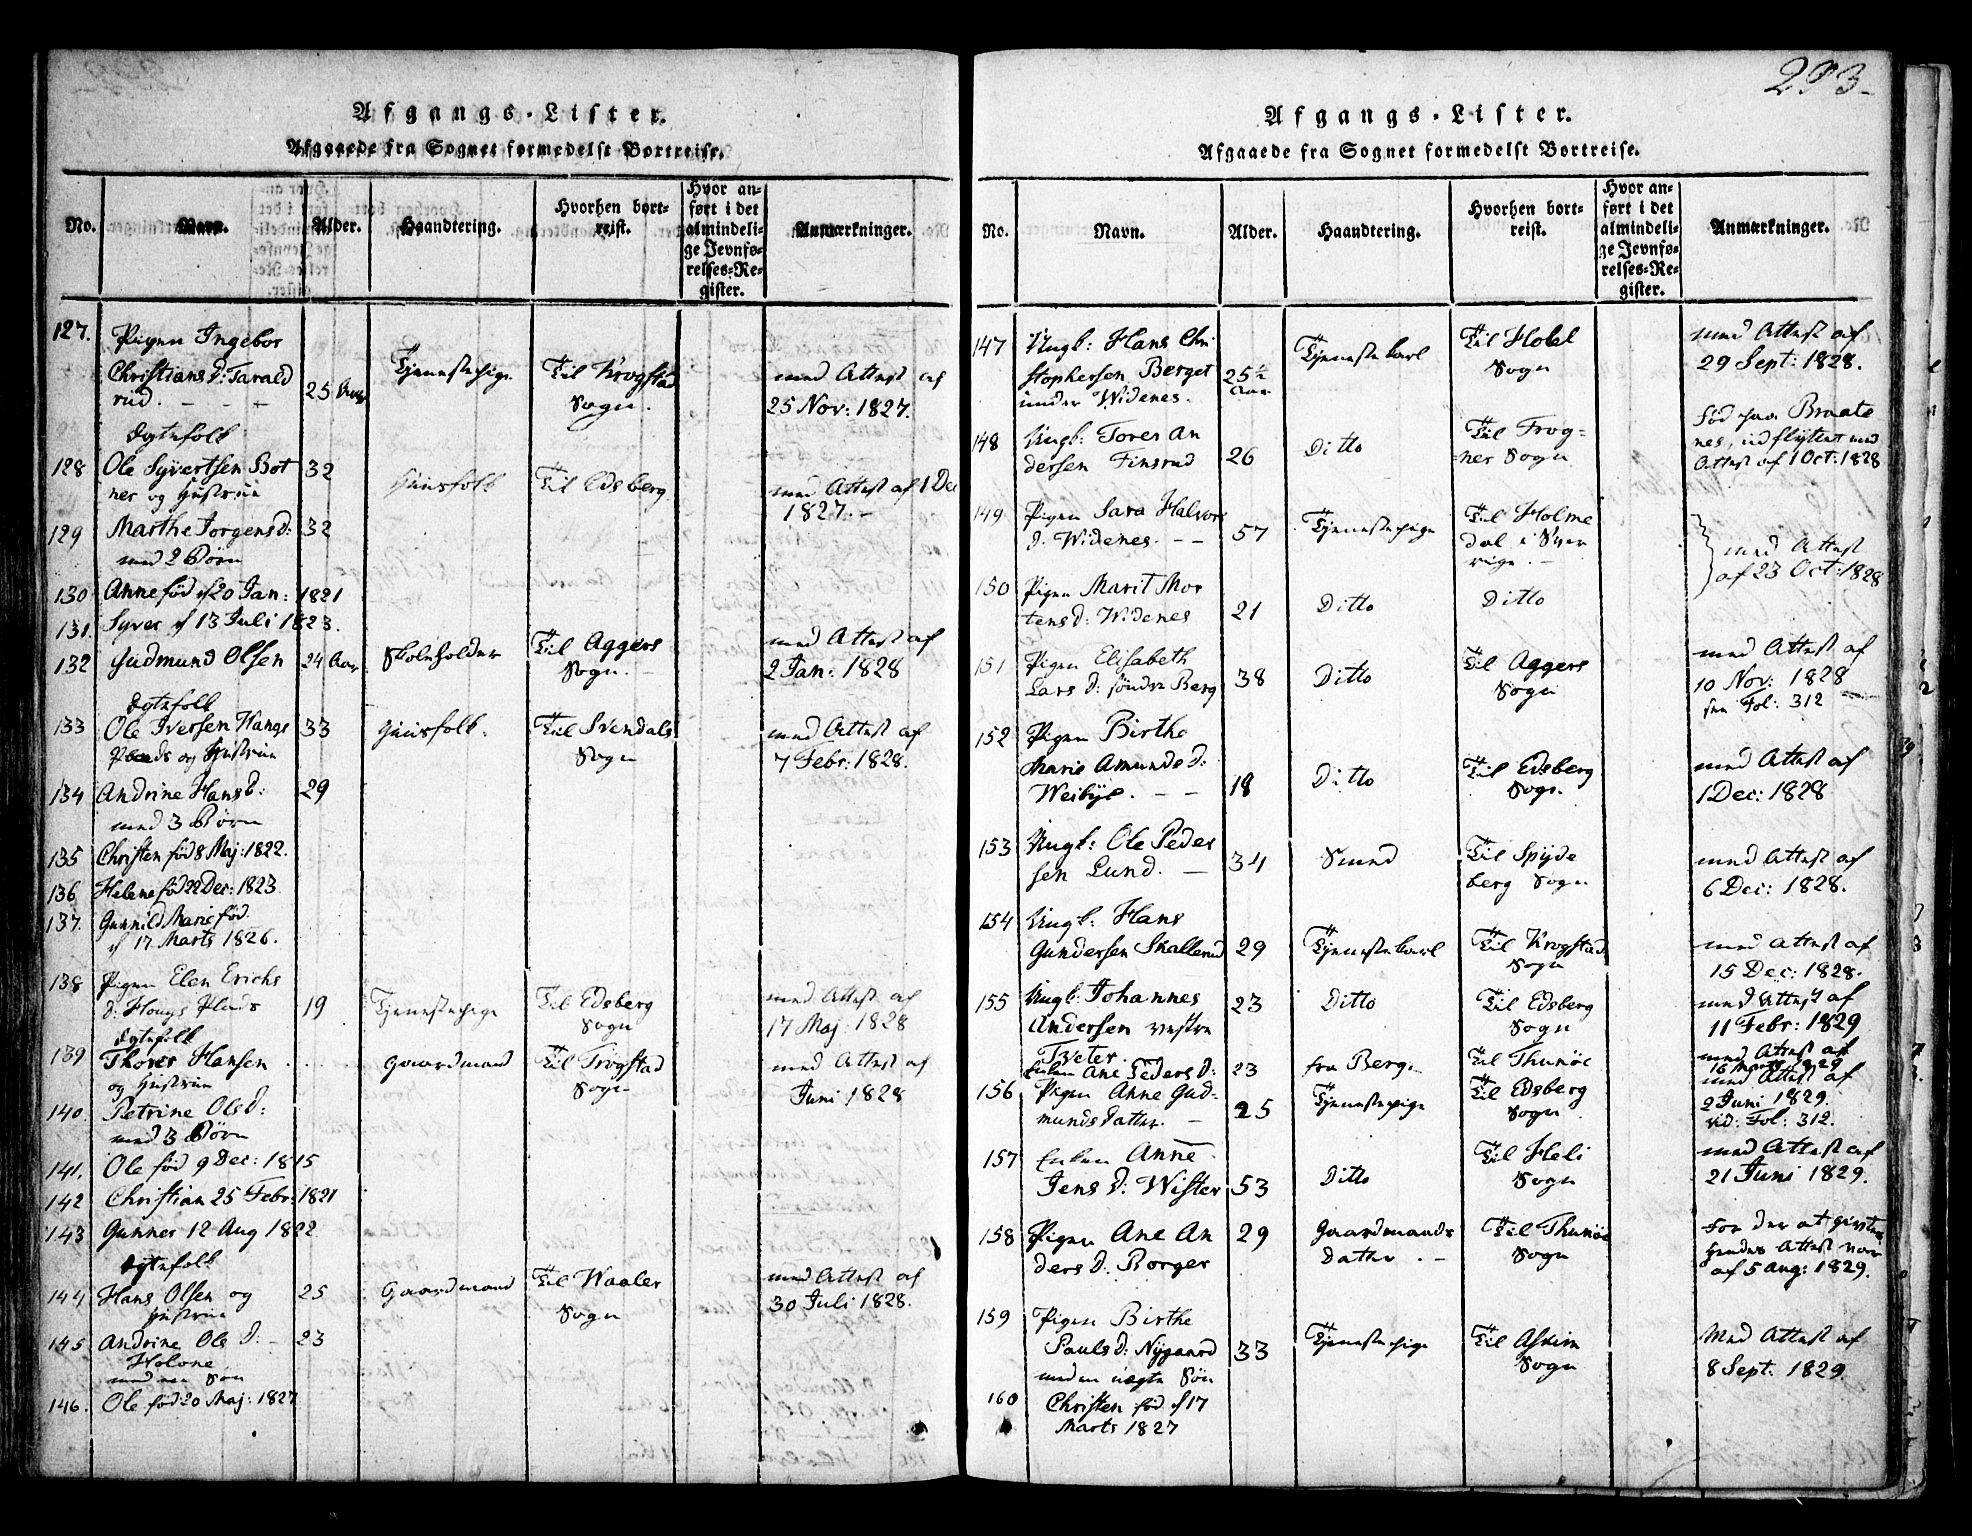 Afgangs-Lister.
Afgaaede fra Sognet formedelst Bortreise.
No.
Navn.
Alder.
Haandtering.
Hvorhen bort-
reist.
Hvor an-
ført i det
almindeli-
ge Jevnfø-
relses-Re-
gister.
Anmærkninger.
127.
Pigen Ingebor
Christians d: Tarald
rud. - - -
25 Aar
Tjenestepige
Til Krogstad
Sogn.
med Attest af
25 Nov: 1827.
Egtefolk
128
Ole Syvertsen Bot
ner og Hustrue
32
Huusfolk
Til Edsberg
med Attest af 1 Dec
1827. -
129
Marthe Jorgensd:
med 2 Børn
32
130
Anne fød d 20 Jan: 1821
131.
Syver d 13 Juli 1823.
132
Gudmund Olsen
24 Aar
Skoleholder
Til Aggers
Sogn. -
med Attest af
2 Jan: 1828
Egtefolk
133
Ole Iversen Haugs
Plads og Hustrue
33
Huusfolk.
Til Svendals
Sogn
med Attest af
7 Febr: 1828.
134
Andrine Hans d:
med 3 Børn
29
135
Christen fød 8 Maj: 1822.
136
Helene fød 22 Dec: 1823
137.
Gunnild Marie fød
d 17 Marts 1826.
138
Pigen Elen Erichs
d: Hougs Plads
19
Tjenestepige
Til Edsberg
Sogn
med Attest af
17 Maj: 1828
Egtefolk
139
Thorer Hansen
og Hustrue
Gaardmand
Til Trøgstad
Sogn
med Attest af
Juni 1828
140.
Petrine Olsd:
med 3 Børn
141.
Ole fød 9 Dec: 1815
142
Christian 25 Febr: 1821
143
Gunner 12 Aug 1822
Egtefolk
144
Hans Olsen og
Hustrue
25
Gaardmand
Til Waaler
Sogn
med Attest af
30 Juli 1828.
145
Andrine Ole d: -
Holone
med en Søn
23
146.
Ole fød 20 Maj: 1827
293.
Afgangs-Lister.
Afgaaede fra Sognet formedelst Bortreise.
No.
Navn.
Alder.
Haandtering.
Hvorhen bort-
reist.
Hvor an-
ført i det
almindeli-
ge Jevnfø-
relses-Re-
gister.
Anmærkninger.
147
Ungk: Hans Chri
stophersen Berget
under Widenes.
25½
Aar
Tjenestekarl
Til Hobel
Sogn
med Attest af
29 Sept: 1828.
148
Ungk: Tores An
dersen Finsrud
26
Ditto
Til Frog-
ner Sogn
Fød paa Braate
nes, udflyttet med
Attest af 1 Oct: 1828
149
Pigen Sara Halvors
d. Widenes. - -
57
Tjenestepige
Til Holme
dal i Sver
rige. -
med Attest
af 23 Oct: 1828
150
Pigen Marit Mor
tens d: Widenes
21
Ditto
Ditto
151
Pigen Elisabeth
Lars d: søndre Berg
38
Ditto
Til Aggers
Sogn
med Attest af
10 Nov: 1828
see Fol: 312
152
Pigen Birthe
Marie Amunds d:
Weibye. - -
18
Ditto
Til Edsberg
Sogn.
med Attest af
1 Dec: 1828
153
Ungk: Ole Peder
sen Lund. -
34
Smed
Til Spyde
berg Sogn
med Attest af
6 Dec: 1828.
154
Ungk: Hans
Gundersen Skallerud
29
Tjenestekarl
Til Krogstad
Sogn
med Attest af
15 Dec: 1828.
155
Ungk: Johannes
Andersen vestre
Tveter.
23
Ditto
Til Edsberg
Sogn
med Attest af
11 Febr: 1829
Enken Ane Peders d:
23
fra Berg.
Til Thunøe
med Attest af
16 Marts 1829
156
Pigen Anne Gud-
munds Datter. -
25
Tjenestepige
Til Edsberg
Sogn
med Attest af
2 Juni 1829.
vid: Fol: 312.
157
Enken Anne
Jens d. Wister
53
Ditto
Til Heli
Sogn
med Attest af
21 Juni 1829.
158
Pigen Ane An
ders d. Borger
29
Gaardmands
Datter. -
Til Thunøe
Sogn
For der at givtes
Hendes Attest var
af 5 Aug: 1829.
159
Pigen Birthe
Pauls d: Nygaard
med en uægte Søn
33
Tjenestepige
Til Askim
Sogn
Med Attest af
8 Sept: 1829.
160
Christen fød d 17
Marts 1827